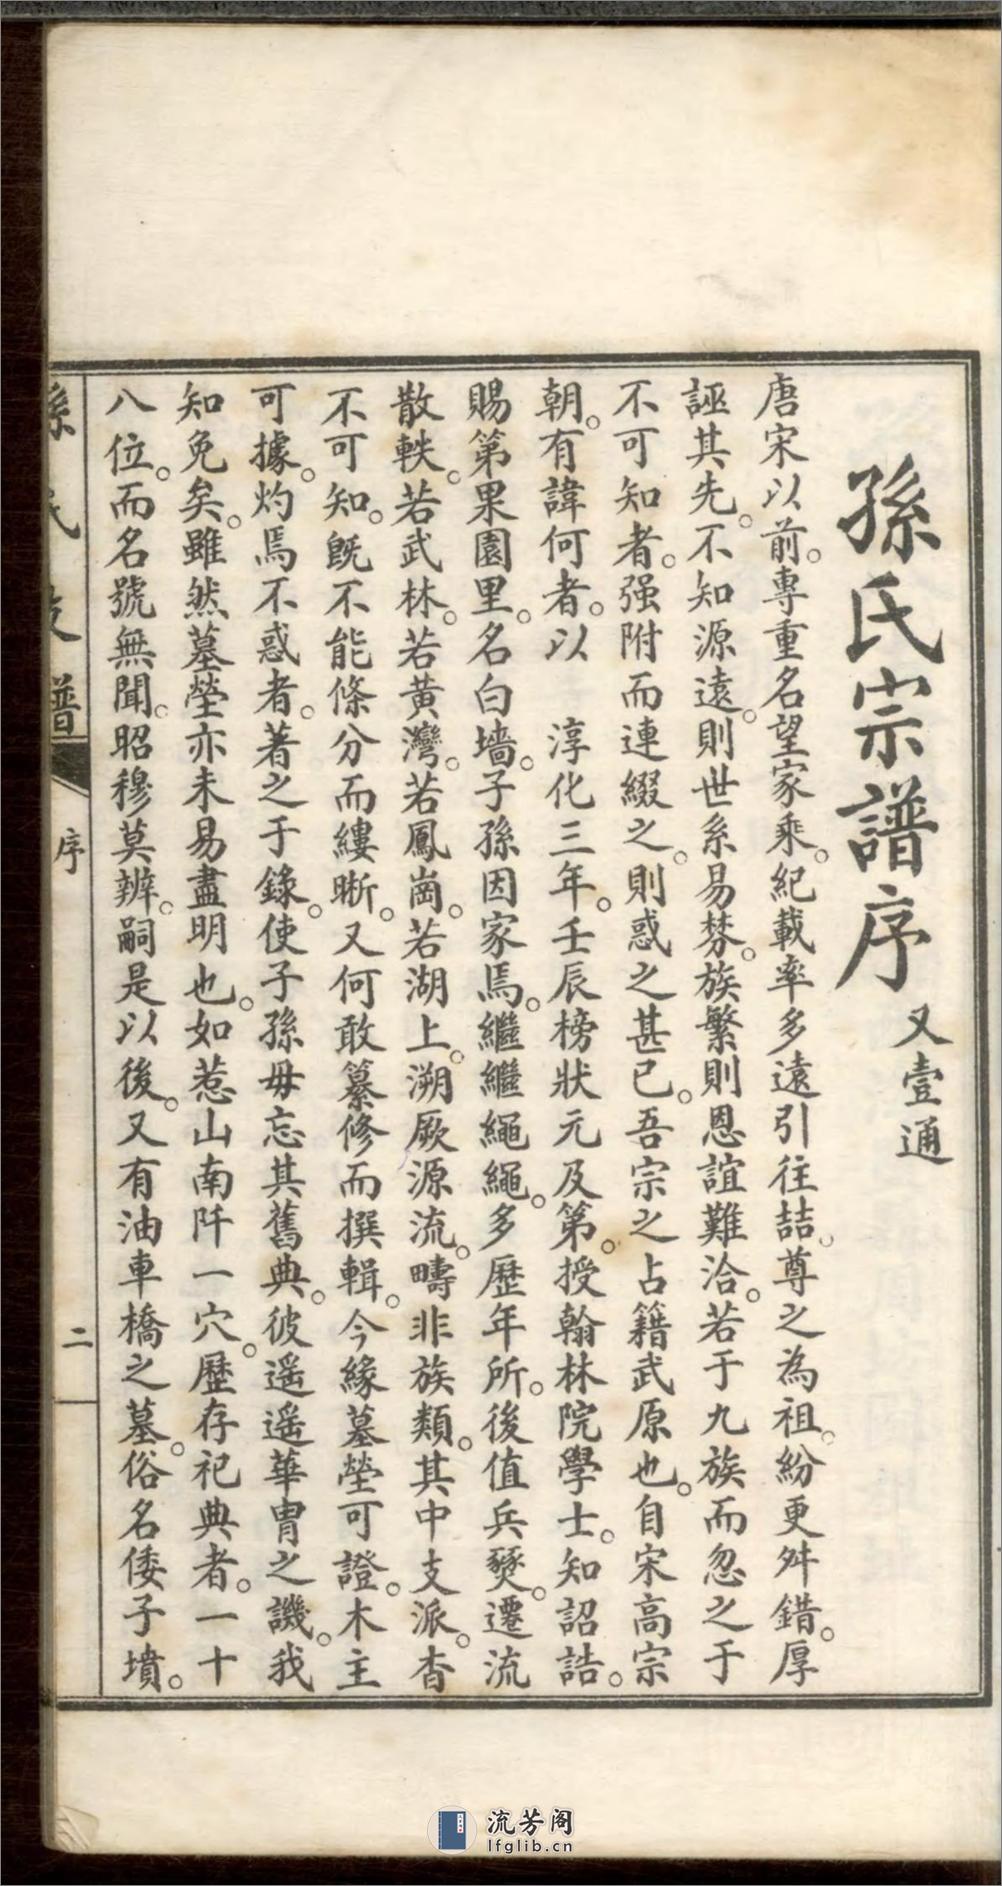 孫氏宗譜序 又壹通
唐宋以前。專重名望家乘。紀載率多遠引往喆。尊之為祖。紛更舛錯。厚
誣其先。不知源遠。則世系易棼。族繁則恩誼難洽。若于九族而忽之于
不可知者。强附而連綴之。則惑之甚已。吾宗之占籍武原也。自宋高宗
朝。有諱何者。以　淳化三年。壬辰榜狀元及第。授翰林院學士。知詔誥。
賜第果園里。名白墻。子孫因家焉。繼繼繩繩。多歷年所。後值兵燹。遷流
散軼。若武林。若黃灣。若鳳崗。若湖上。溯厥源流。疇非族類。其中支派。杳
不可知。旣不能條分而縷晰。又何敢纂修而撰輯。今緣墓塋可證。木主
可據。灼焉不惑者。著之于錄。使子孫毋忘其舊典。彼遥遥華胄之譏。我
知免矣。雖然墓塋亦未易盡明也。如惹山南阡一穴。歷存祀典者。一十
八位。而名號無聞。昭穆莫辨。嗣是以後。又有油車橋之墓。俗名倭子墳。
孫氏支譜
序
二
流芳阁
lfglib.cn